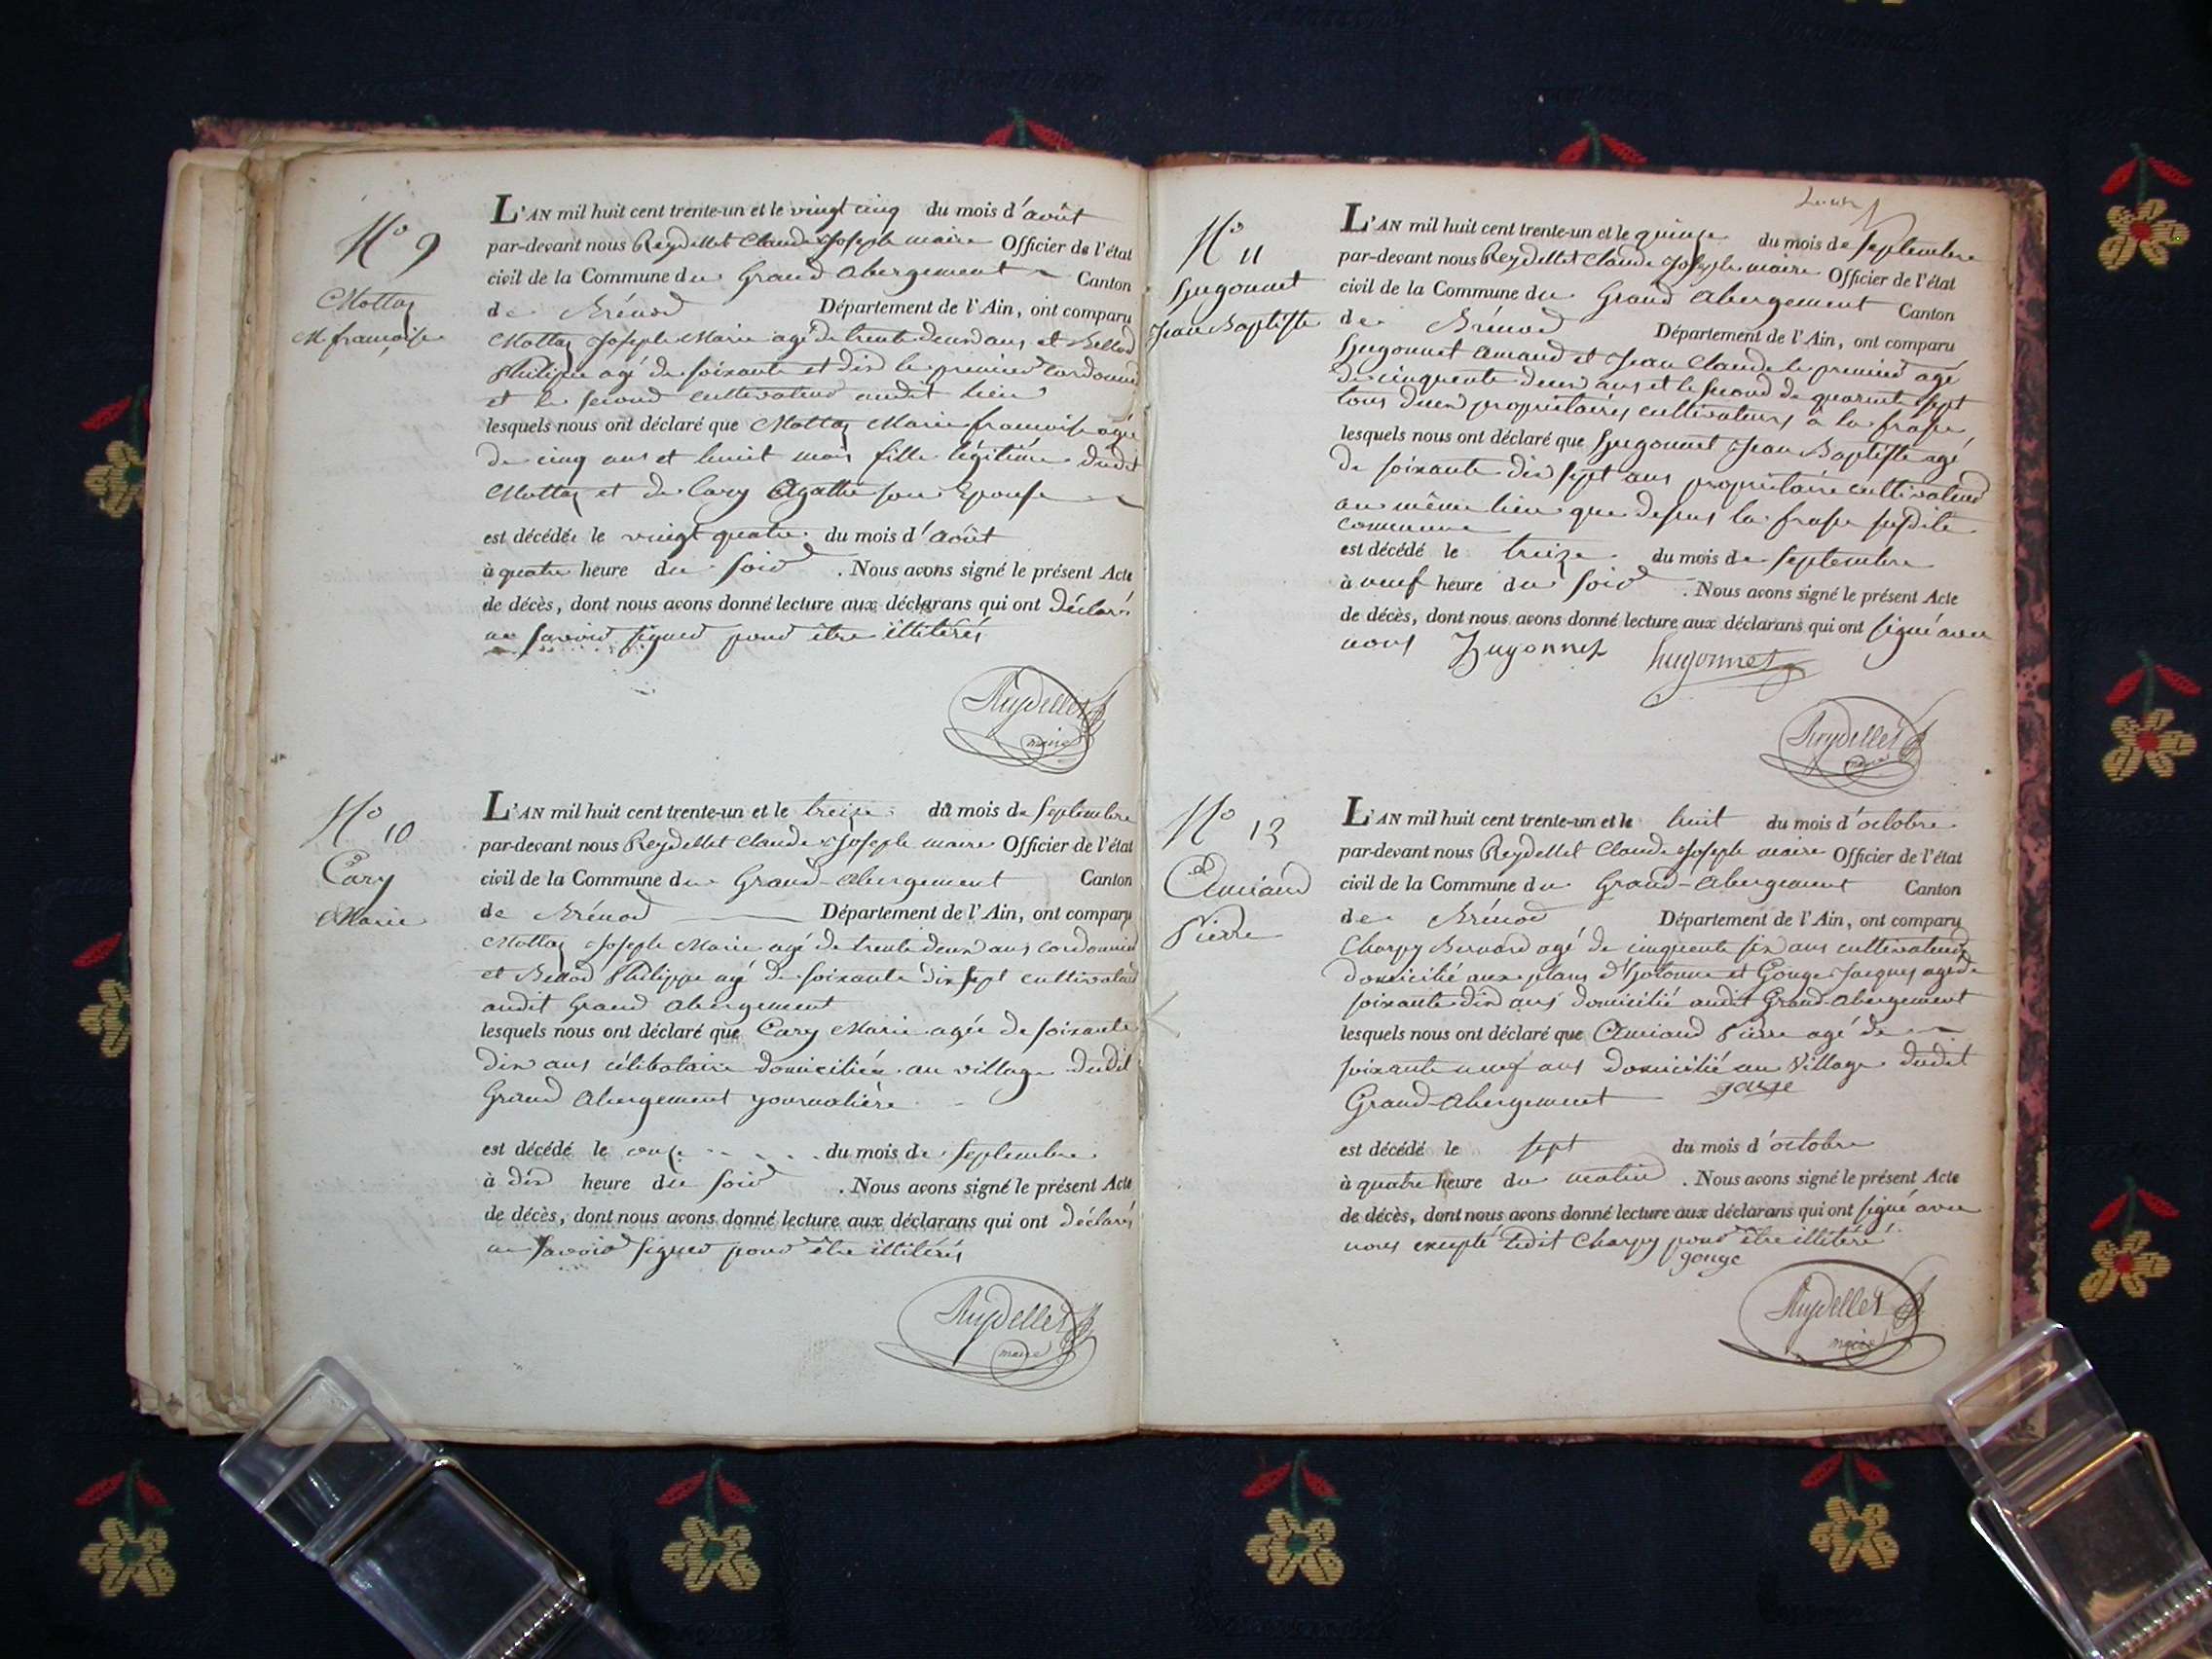 N° 9
Mottaz
M françoise
L'AN mil huit cent trente-un et le vingt cinq du mois d'août
par-devant nous Reydellet Claude Joseph maire Officier de l'état
civil de la Commune du Grand abergement Canton
de Brénod Département de l'Ain, ont comparu
Mottaz Joseph Marie agé de trente deux ans et Bellod
Philippe agé de soixante et dix le premier cordonnier
et le second cultivateur audit lieu
lesquels nous ont déclaré que Mottaz Marie françoise agée
de cinq ans et huit mois fille légitime dudit
Mottaz et de Cary Agathe son Epouse
est décédée le vingt quatre du mois d'août
à quatre heure du soir . Nous avons signé le présent Acte
de décès, dont nous avons donné lecture aux déclarans qui ont déclaré
ne savoir signer pour être illitérés
Reydellet
maire
N° 10
Cary
Marie
L'AN mil huit cent trente-un et le treize du mois de septembre
par-devant nous Reydellet Claude Joseph maire Officier de l'état
civil de la Commune du Grand-abergement Canton
de Brénod Département de l'Ain, ont comparu
Mottaz Joseph Marie agé de trente deux ans cordonnier
et Bellod Philippe agé de soixante dix sept cultivateur
audit Grand abergement
lesquels nous ont déclaré que Cary Marie agée de soixante
dix ans célibataire domiciliée au village dudit
Grand abergement journalière
est décédé le onze du mois de septembre
à dix heure du soir . Nous avons signé le présent Acte
de décès, dont nous avons donné lecture aux déclarans qui ont déclarés
ne savoir signer pour être illitérés
Reydellet
maire
N° 11
Hugonnet
Jean Baptiste
L'AN mil huit cent trente-un et le quinze du mois de septembre
par-devant nous Reydellet Claude Joseph maire Officier de l'état
civil de la Commune du Grand abergement Canton
de Brénod Département de l'Ain, ont comparu
Hugonnet amand et Jean Claude le premier agé
de cinquante deux ans et le second de quarante sept
tous deux propriétaires cultivateurs à la frasse
lesquels nous ont déclaré que Hugonnet Jean Baptiste agé
de soixante dix sept ans propriétaire cultivateur
au même lieu que dessus la frasse susdite
commune
est décédé le treize du mois de septembre
à neuf heure du soir . Nous avons signé le présent Acte
de décès, dont nous avons donné lecture aux déclarans qui ont signé avec
nous Hugonnet hugonnet
Reydellet
maire
N° 13
Amiand
Pierre
L'AN mil huit cent trente-un et le huit du mois d'octobre
par-devant nous Reydellet Claude Joseph maire Officier de l'état
civil de la Commune du Grand-abergement Canton
de Brénod Département de l'Ain, ont comparu
Charpy Bernard agé de cinquante six ans cultivateur
domicilié aux plans d'hotonne et Gouge Jacques agé de
soixante dix ans domicilié audit Grand abergement
lesquels nous ont déclaré que Amiand Pierre agé de
soixante neuf ans domicilié au Village dudit
Grand-abergement gouge
est décédé le sept du mois d'octobre
à quatre heure du matin . Nous avons signé le présent Acte
de décès, dont nous avons donné lecture aux déclarans qui ont signé avec
nous excepté ledit Charpy pour être illitéré
gouge
Reydellet
maire